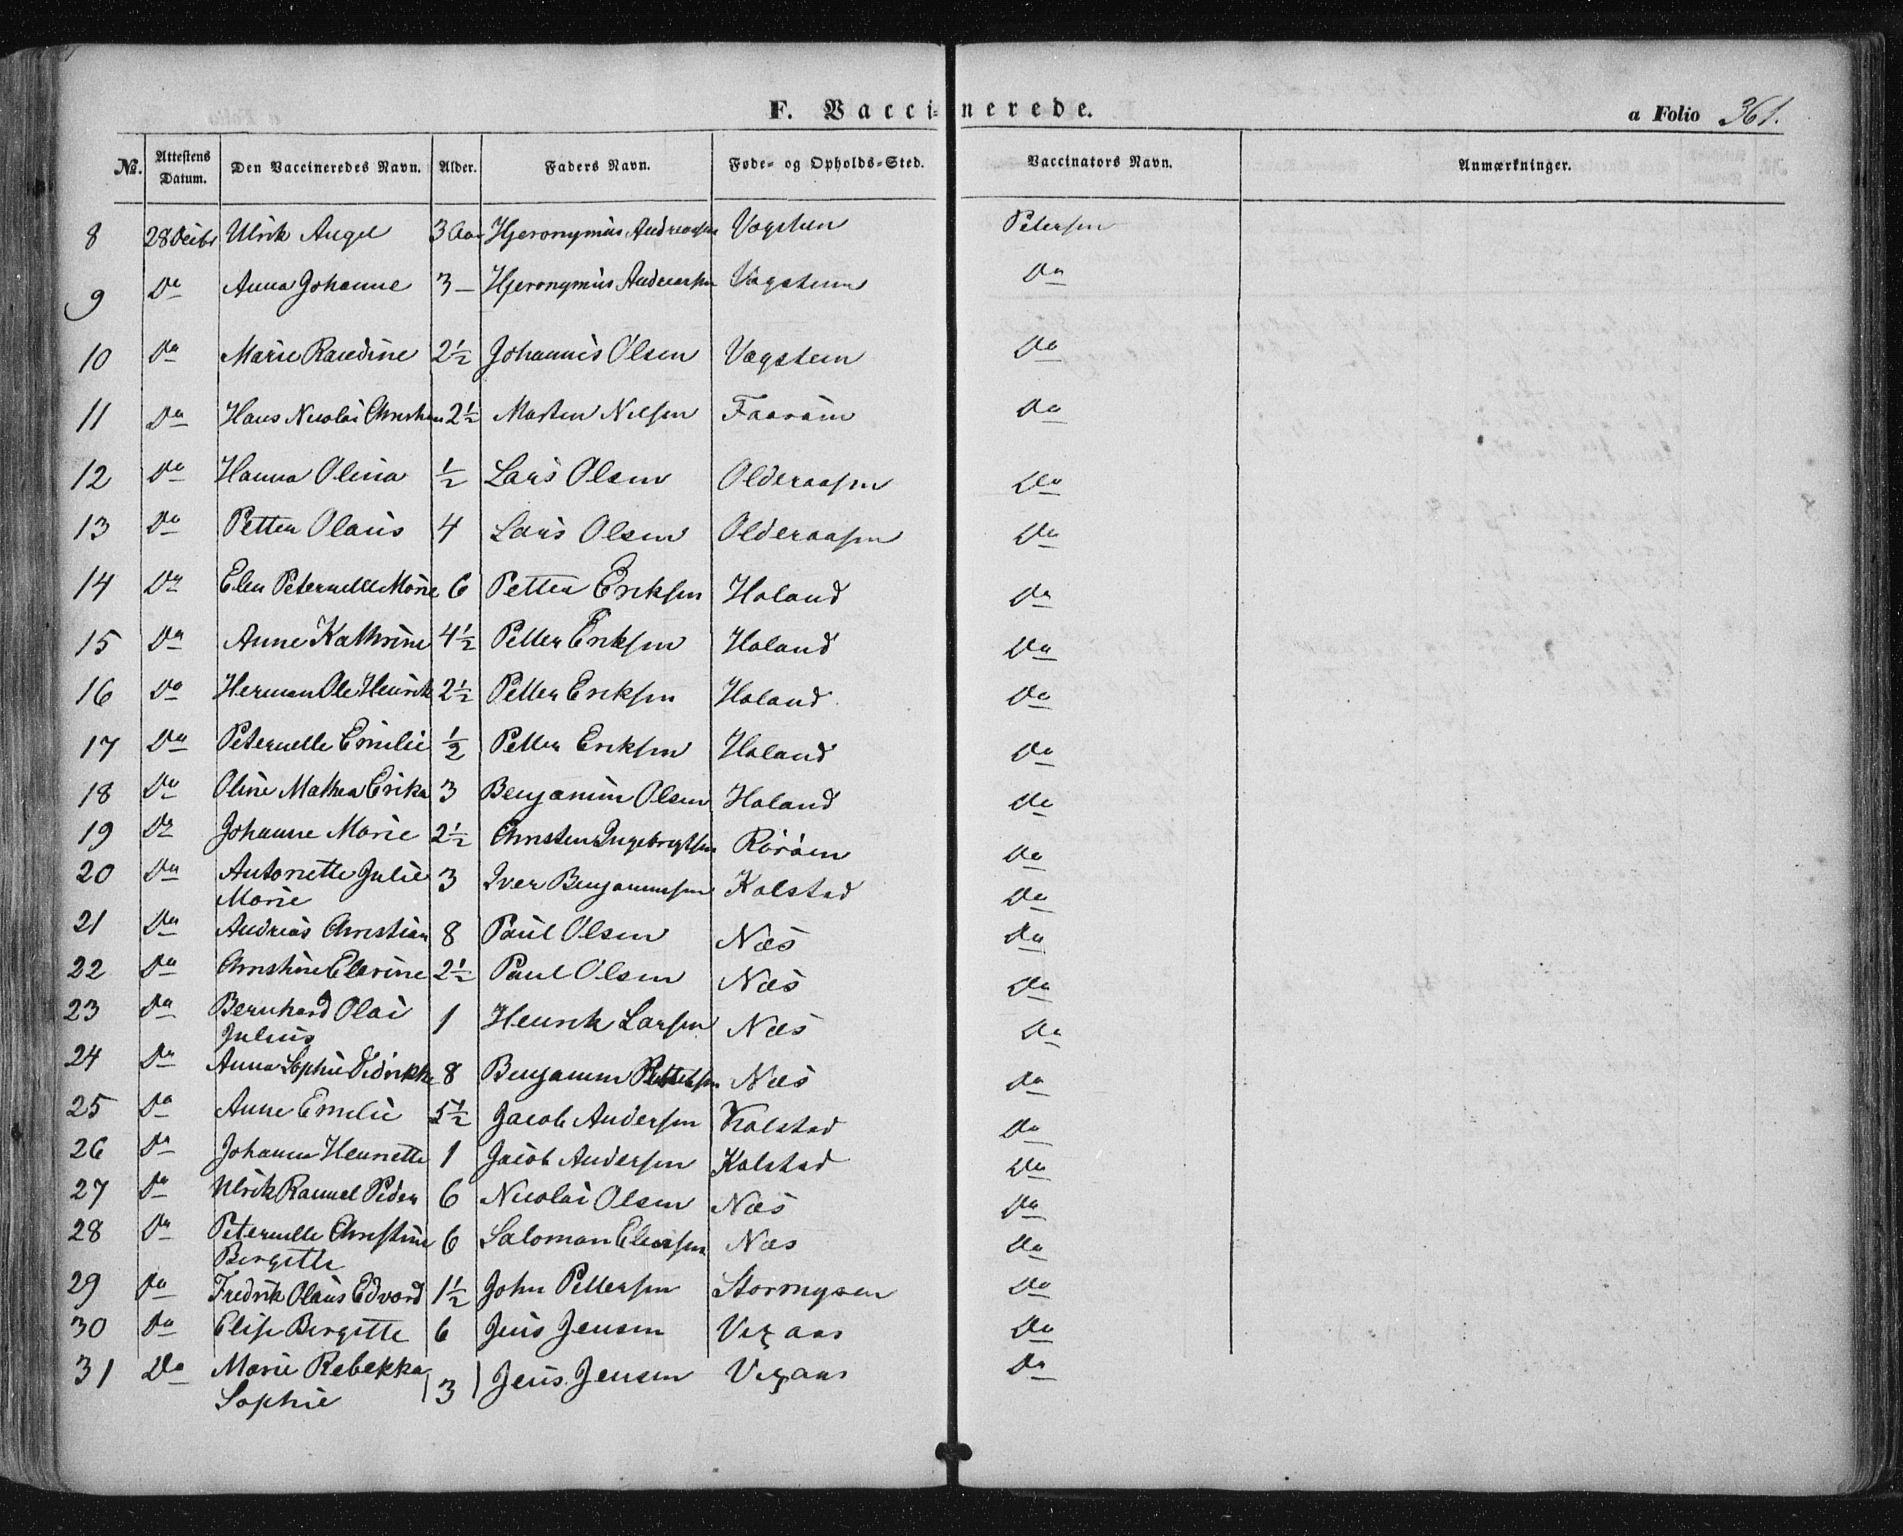 F. Vaccinerede.
a Folio 361.
No. Attestens Datum. Den Vaccineredes Navn. Alder. Faders Navn. Føde- og Opholds-Sted. Vaccinators Navn. Anmærkninger.
8 28 Ulrik Angel 3 Aar Hjeronymus Andreassen Vagsten Petersen
9 Do Anna Johanne 3 — Hjeronymus Andreassen Do
10 Do Marie 2½ Johannes Olsen Do
11 Do Hans Nicolai Christian 2½ Morten Nilsen Do
12 Do Hanna Olina ½ Lars Olsen Olderaasen Do
13 Do Petter Olaus 4 Lars Olsen Olderaasen Do
14 Do Elen Peternelle Marie 6 Petter Eriksen Haland Do
15 Do Anne Kathrine 4½ Petter Eriksen Haland Do
16 Do Herman Ole Henrik 2½ Petter Eriksen Haland Do
17 Do Peternelle Emilie ½ Petter Eriksen Haland Do
18 Do Oline Mathea Erika 3 Benjamin Olsen Haland Do
19 Do Johanne Marie 2½ Christen Ingebrigtsen Do
20 Do Antonette Julie 3 Iver Benjaminsen Kalstad Do
Marie
21 Do Andreas Christian 8 Paul Olsen Næs Do
22 Do Christine Elevine 2½ Paul Olsen Næs Do
23 Do Bernhard Olai 1 Henrik Larsen Næs Do
Julius
24 Do Anna Sophie Didrikke 8 Benjamin Næs Do
25 Do Anne Emelie 5½ Jacob Andersen Kalstad Do
26 Do Johanna Henriette 1 Jacob Andersen Kalstad Do
27 Do Ulrik Peder 6 Nicolai Olsen Næs Do
28 Do Peternelle Christine 6 Saloman Næs Do
Birgitte
29 Do Fredrik Olaus Edvard 1½ John Pettersen Stormyren Do
30 Do Elise Birgitte 6 Jens Jensen Do
31 Do Marie Rebekka 3 Jens Jensen Do
Sophie